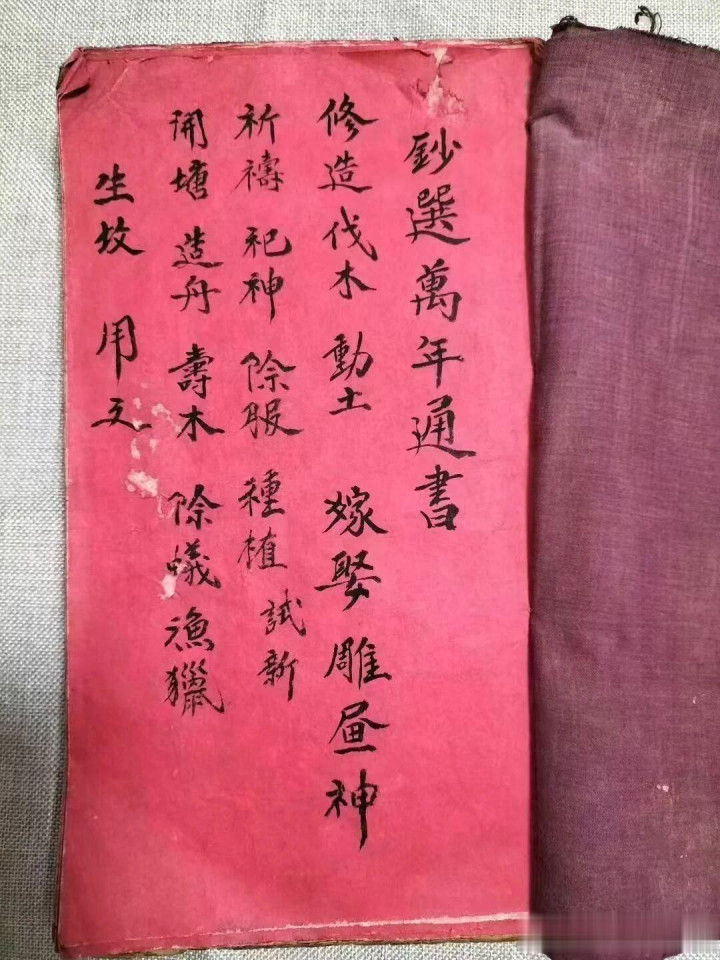 鈔選萬年通書
修造伐木 動土 嫁娶 雕畫神
祈禱 祀神 除服 種植 試新
開塘 造舟 壽木 除蟻 漁獵
生坟 用文